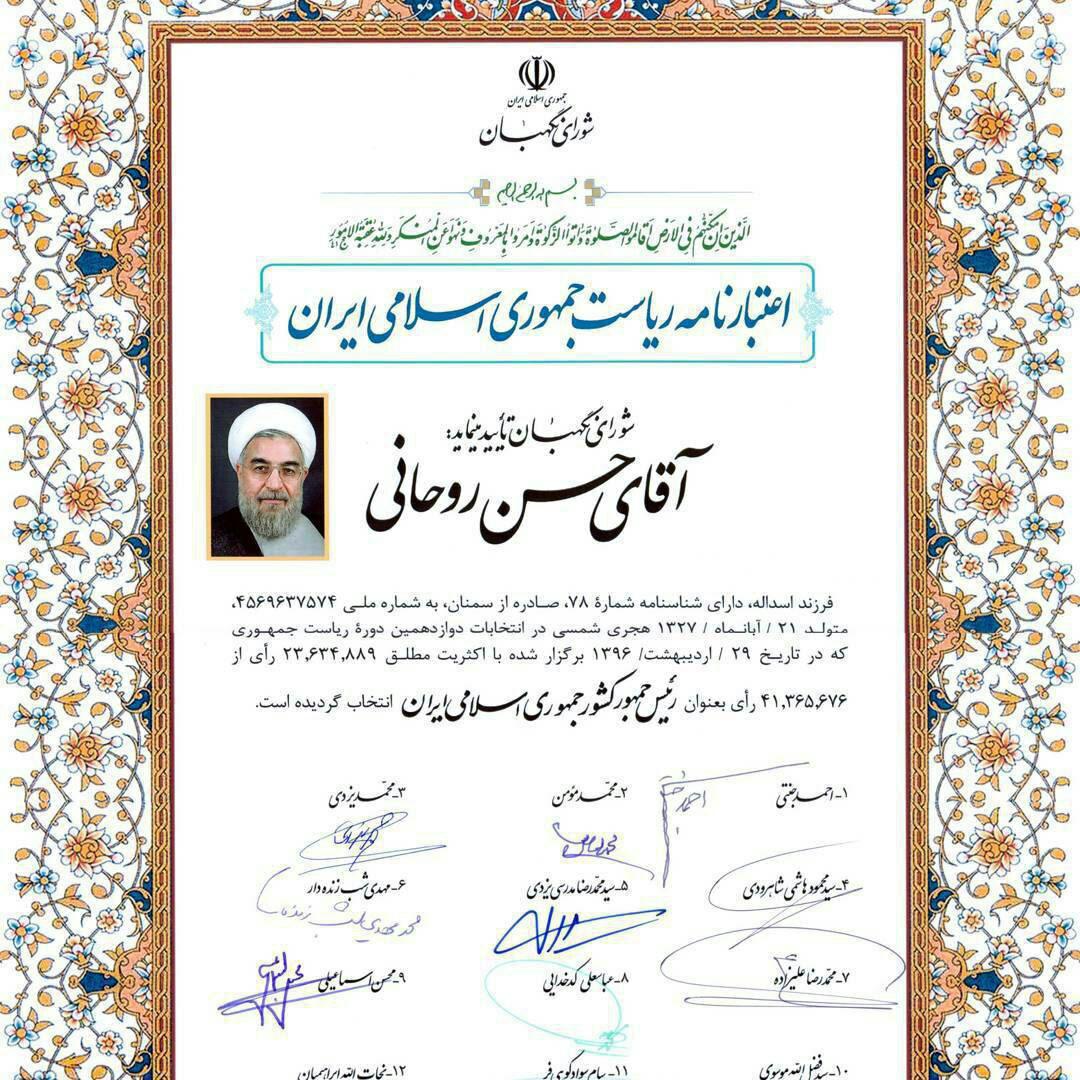 جمهوری اسلامی ایران
شورای نگهبان
بسم الله الرحمن الرحیم
الَّذینَ اِنْ مَکَّنّاهُم فِی الاَرضِ اَقامُوا الصَّلوةَ وَ اٰتَوُا الزَّکوةَ وَ اَمَروا بِالمَعروفِ وَ نَهَوا عَنِ المُنکَرِ وَ لِلّٰهِ عٰقِبَةُ الاُمورِ
اعتبارنامه ریاست جمهوری اسلامی ایران
شورای نگهبان تأیید مینماید:
آقای حسن روحانی
فرزند اسداله، دارای شناسنامه شمارهٔ ۷۸، صادره از سمنان، به شماره ملی ۴۵۶۹۶۳۷۵۷۴،
متولد ۲۱ / آبانماه / ۱۳۲۷ هجری شمسی در انتخابات دوازدهمین دورهٔ ریاست جمهوری
که در تاریخ ۲۹ / اردیبهشت/ ۱۳۹۶ برگزار شده با اکثریت مطلق ۲۳,۶۳۴,۸۸۹ رأی از
۴۱,۳۶۵,۶۷۶ رأی بعنوان رئیس جمهور کشور جمهوری اسلامی ایران انتخاب گردیده است.
۱- احمد جنتی ۲- محمد مؤمن ۳- محمد یزدی
۴- سید محمود هاشمی شاهرودی ۵- سید محمدرضا مدرسی یزدی ۶- مهدی شب زنده دار
۷- محمدرضا علیزاده ۸- عباسعلی کدخدایی ۹- محسن اسماعیلی
۱۰- سید فضل الله موسوی ۱۱- سام سوادکوهی فر ۱۲- نجات الله ابراهیمیان